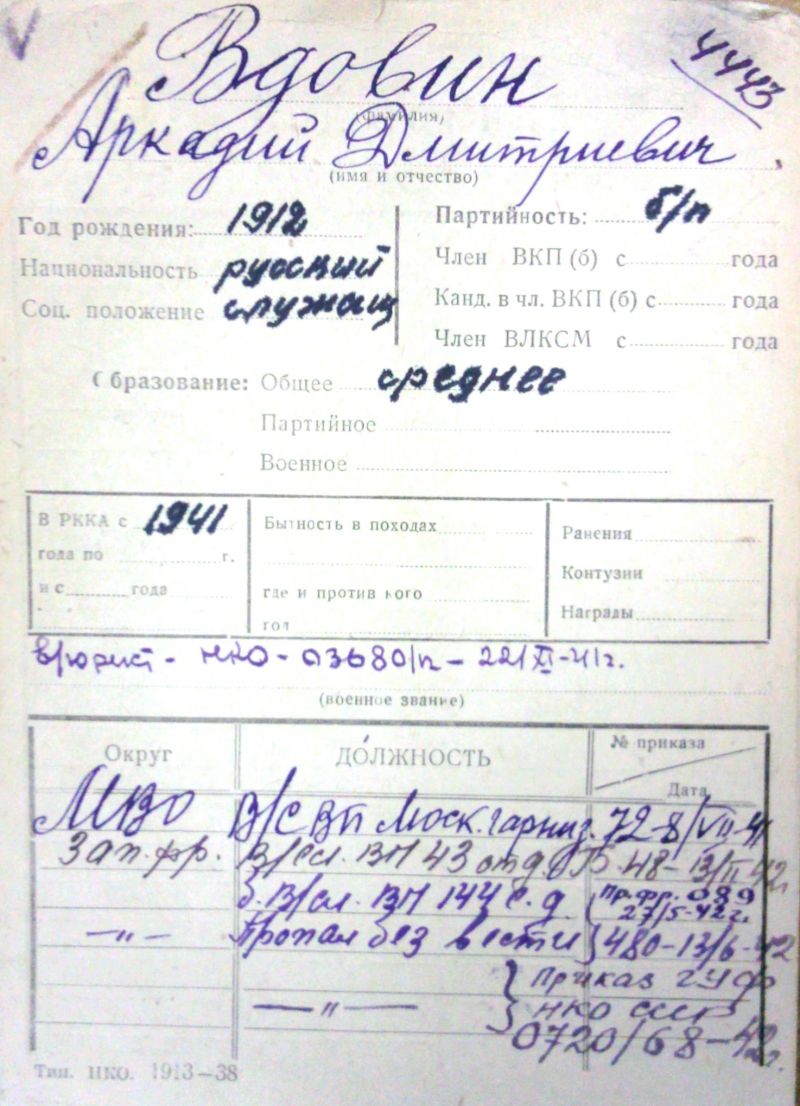 4443
Вдовин
(фамилия)
Аркадий Дмитриевич
(имя и отчество)
Год рождения: 1912
Национальность русский
Соц. положение служащ
Партийность: б/п
Член ВКП (б) с года
Канд. в чл. ВКП (б) с года
Член ВЛКСМ с года
Образование: Общее среднее
Партийное
Военное
В РККА с 1941
года по г.
и с года
Бытность в походах
где и против кого
год
Ранения
Контузии
Награды
в/юрист - НКО - 03680/п - 22/XI-41г.
(военное звание)
Округ ДОЛЖНОСТЬ № приказа
Дата
МВО В/С ВП Моск. гарниз. 72-8/VII-41
Зап. фр. В/сл. ВП 43 отд. 48-13/II-42г
б. В/сл. ВП 144 с. д. Пр. фр. 089
27/5-42г.
—"— Пропал без вести 480-13/6-42
Приказ ГУФ
—"— НКО СССР
0720/68-42г.
Тип. НКО. 1913—38